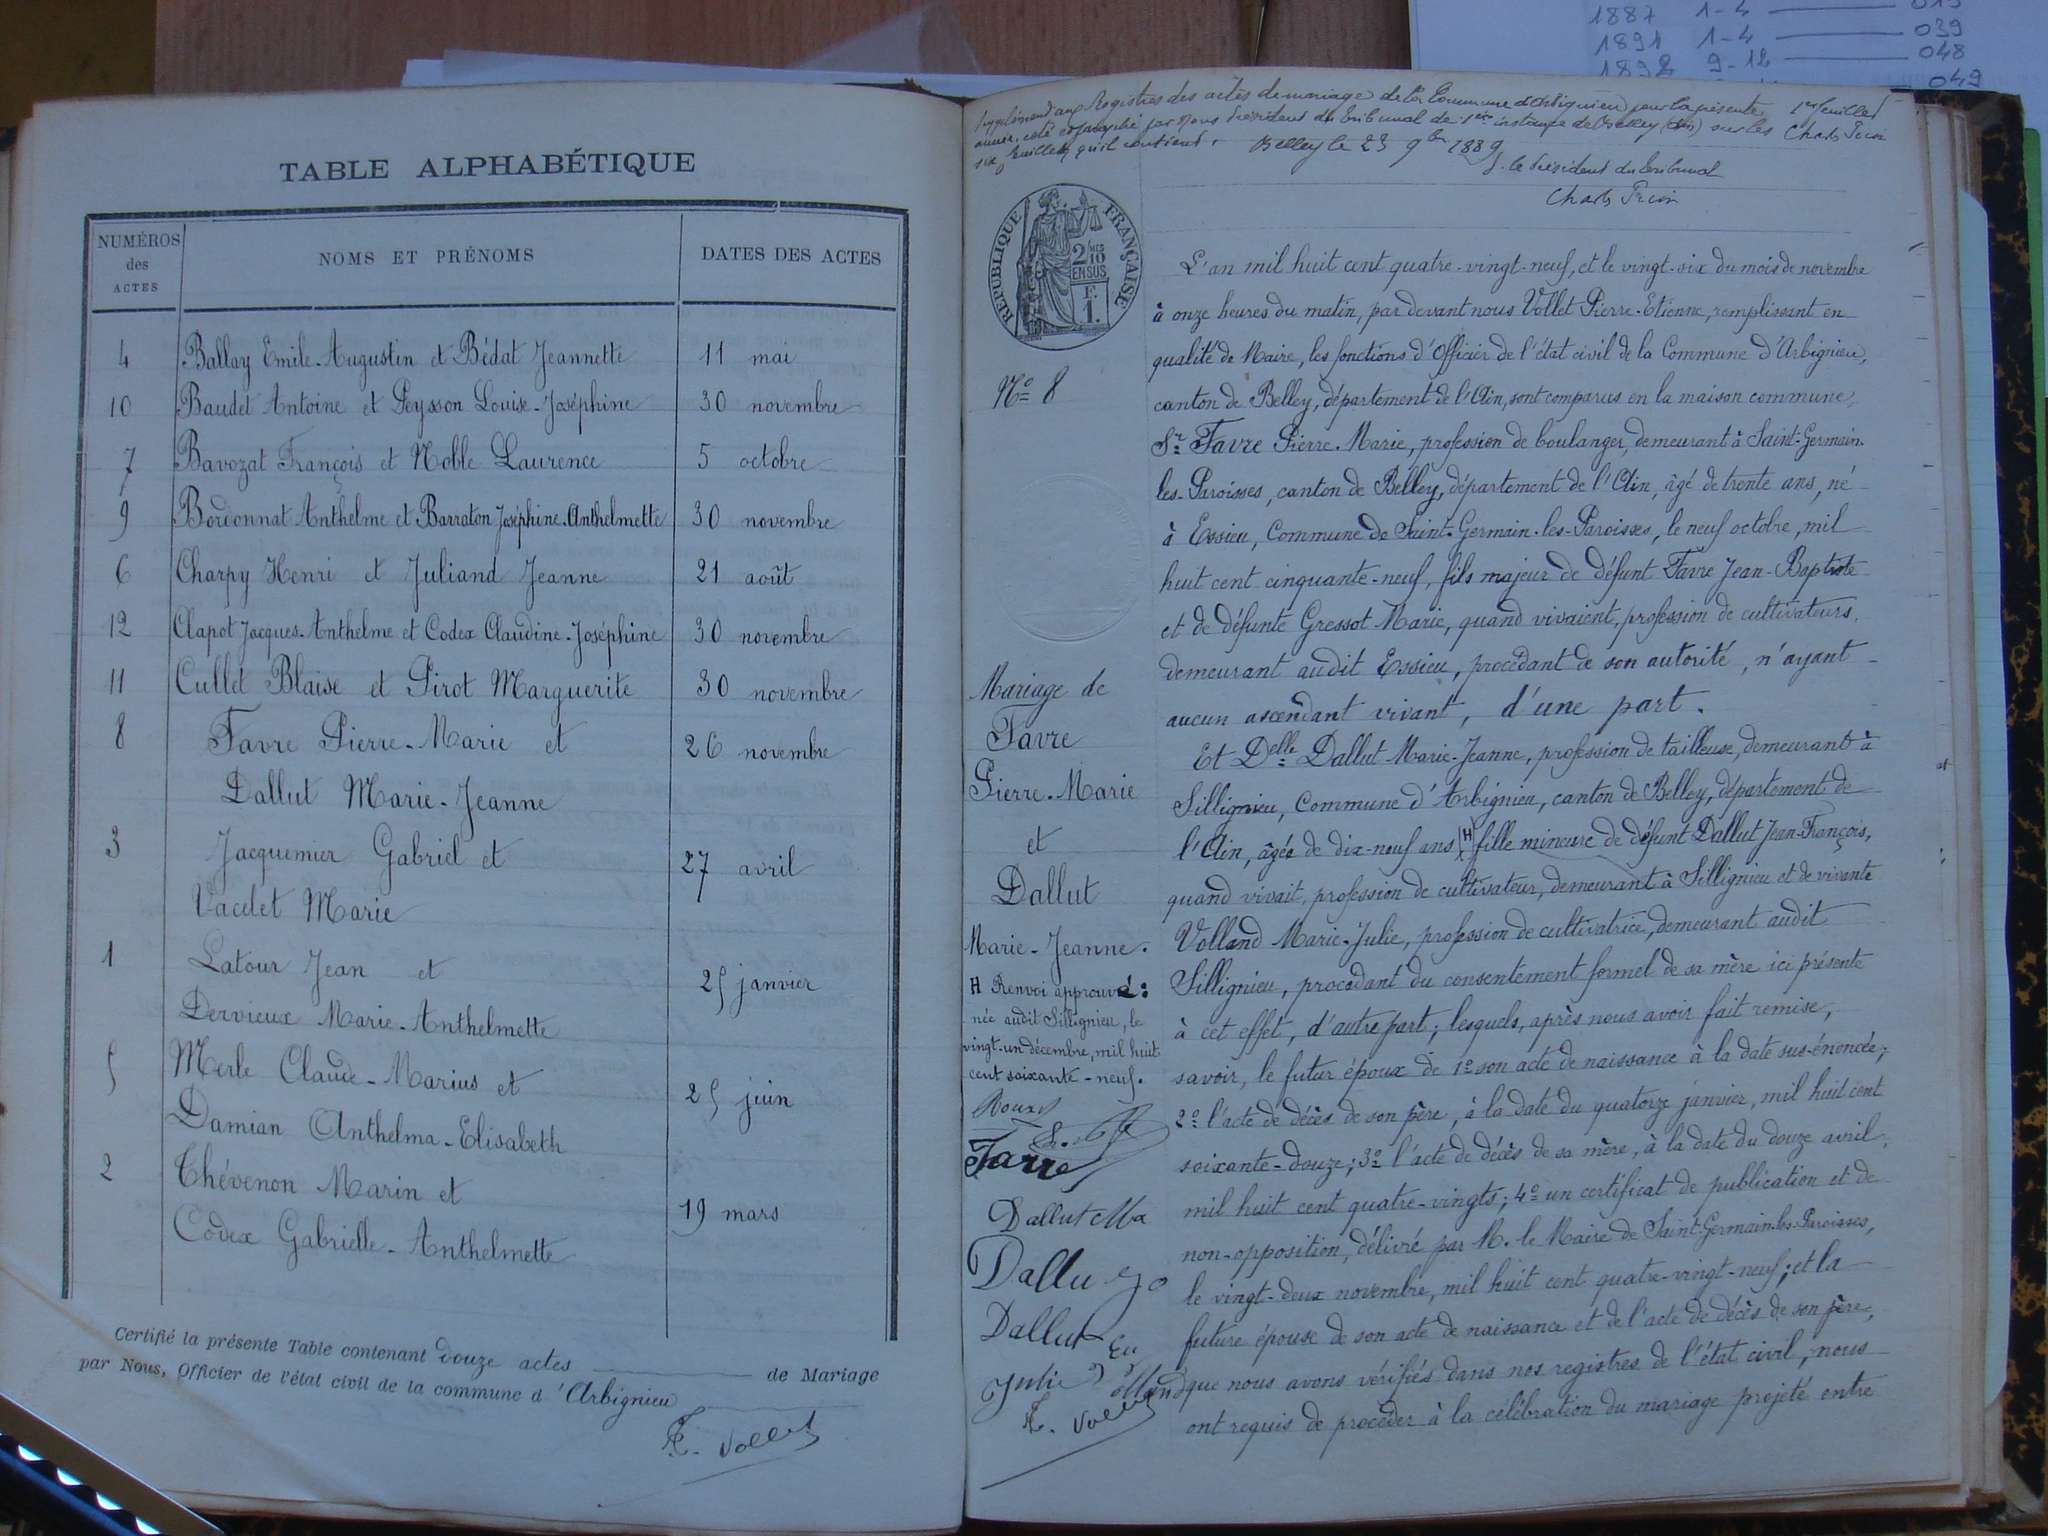 1887 1-4 015
1891 1-4 039
1892 9-12 048
049
TABLE ALPHABÉTIQUE
NUMÉROS des ACTES NOMS ET PRÉNOMS DATES DES ACTES
4 Ballay Emile-Augustin et Bédat Jeannette 11 mai
10 Baudet Antoine et Peysson Louise-Joséphine 30 novembre
7 Bavozat François et Noble Laurence 5 octobre
9 Bordonnat Anthelme et Barraton Joséphine-Anthelmette 30 novembre
6 Charpy Henri et Juliand Jeanne 21 août
12 Clapot Jacques-Anthelme et Codex Claudine-Joséphine 30 novembre
11 Cullet Blaise et Pirot Marguerite 30 novembre
8 Favre Pierre-Marie et 26 novembre
Dallut Marie-Jeanne
3 Jacquemier Gabriel et 27 avril
Vacelet Marie
1 Latour Jean et 25 janvier
Dervieux Marie-Anthelmette
5 Merle Claude-Marius et 25 juin
Damian Anthelma-Elisabeth
2 Thévenon Marin et 19 mars
Codex Gabrielle-Anthelmette
Certifié la présente Table contenant douze actes de Mariage
par Nous, Officier de l'état civil de la commune d'Arbignieu
E. Vollet
Supplément aux Registres des actes de mariage de la Commune d'Arbignieu pour la présente 1er feuillet
année, coté et paraphé par Nous Président du Tribunal de 1ère instance de Belley (Ain) sur les Charles
six feuillets qu'il contient. Belley le 23 9bre 1889
Le Président du Tribunal
Charles
RÉPUBLIQUE FRANÇAISE
2/10 MES
EN SUS
F.
1.
No 8
Mariage de
Favre
Pierre-Marie
et
Dallut
Marie-Jeanne.
H Renvoi approuvé:
née audit Sillignieu, le
vingt-un décembre, mil huit
cent soixante-neuf.
Roux
Favre
Dallut Ma
Dallu Jo
Dallut Eu
Julie Volland
E. Vollet
L'an mil huit cent quatre-vingt-neuf, et le vingt-six du mois de novembre
à onze heures du matin, par devant nous Vollet Pierre-Etienne, remplissant en
qualité de Maire, les fonctions d'Officier de l'état civil de la Commune d'Arbignieu,
canton de Belley, département de l'Ain, sont comparus en la maison commune,
Sr Favre Pierre-Marie, profession de boulanger, demeurant à Saint-Germain-
les-Paroisses, canton de Belley, département de l'Ain, âgé de trente ans, né
à Essieu, Commune de Saint-Germain-les-Paroisses, le neuf octobre, mil
huit cent cinquante-neuf, fils majeur de défunt Favre Jean-Baptiste
et de défunte Gressot Marie, quand vivaient, profession de cultivateurs,
demeurant audit Essieu, procédant de son autorité, n'ayant
aucun ascendant vivant, d'une part.
Et Delle Dallut Marie-Jeanne, profession de tailleuse, demeurant à
Sillignieu, Commune d'Arbignieu, canton de Belley, département de
l'Ain, âgée de dix-neuf ans H fille mineure de défunt Dallut Jean-François,
quand vivait, profession de cultivateur, demeurant à Sillignieu et de vivante
Volland Marie-Julie, profession de cultivatrice, demeurant audit
Sillignieu, procédant du consentement formel de sa mère ici présente
à cet effet, d'autre part; lesquels, après nous avoir fait remise,
savoir, le futur époux de 1o son acte de naissance à la date sus-énoncée;
2o l'acte de décès de son père, à la date du quatorze janvier, mil huit cent
soixante-douze; 3o l'acte de décès de sa mère, à la date du douze avril,
mil huit cent quatre-vingts; 4o un certificat de publication et de
non-opposition, délivré par M. le Maire de Saint-Germain-les-Paroisses,
le vingt-deux novembre, mil huit cent quatre-vingt-neuf; et la
future épouse de son acte de naissance et de l'acte de décès de son père,
que nous avons vérifiés dans nos registres de l'état civil, nous
ont requis de procéder à la célébration du mariage projeté entre